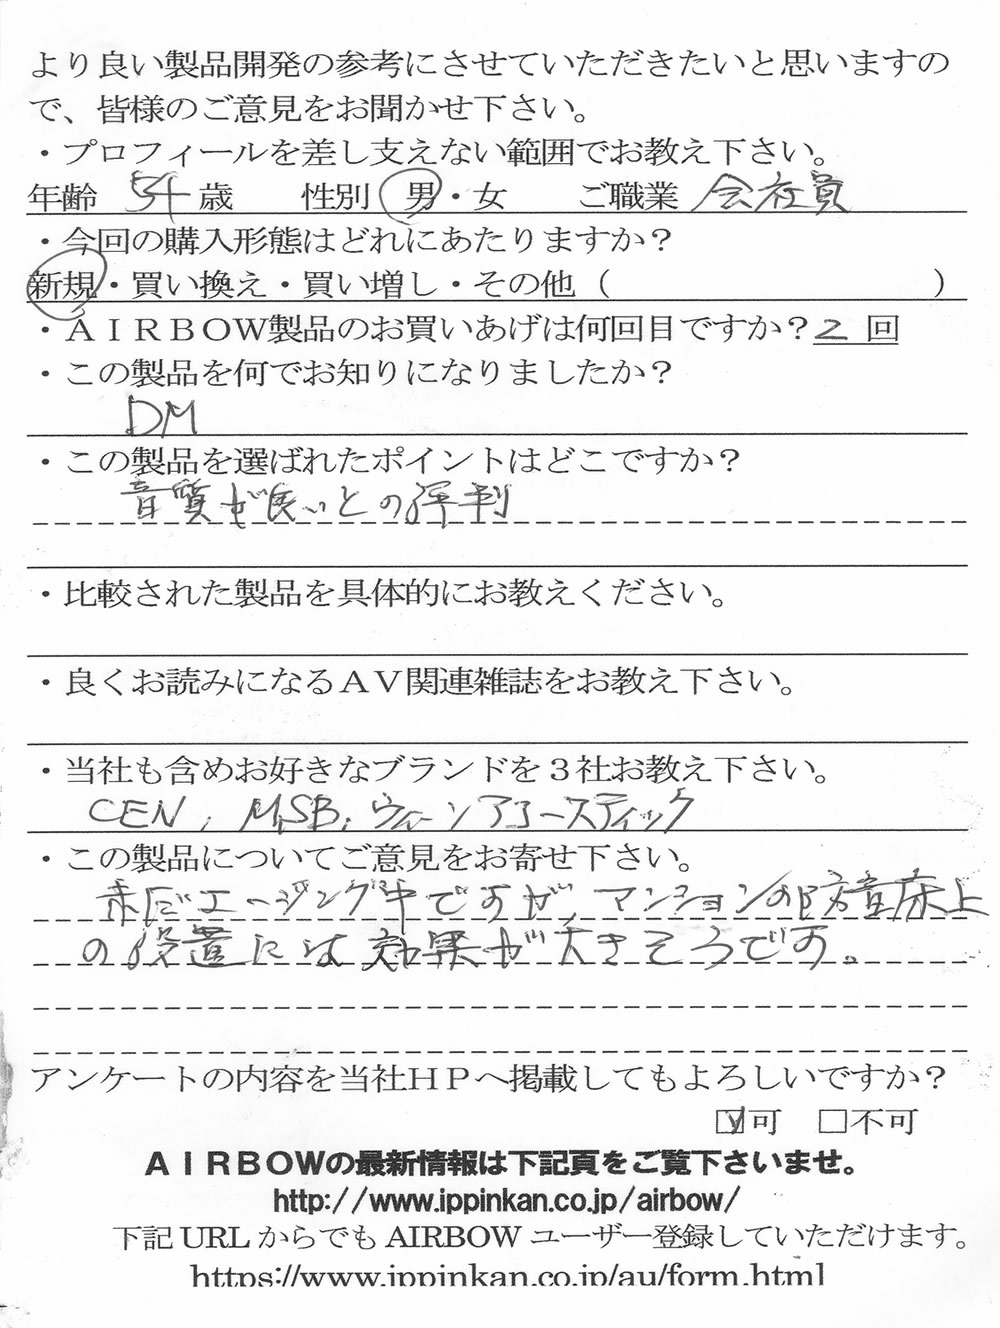 より良い製品開発の参考にさせていただきたいと思いますの
で、皆様のご意見をお聞かせ下さい。
・プロフィールを差し支えない範囲でお教え下さい。
年齢 54 歳 性別 男・女 ご職業 会社員
・今回の購入形態はどれにあたりますか？
新規・買い換え・買い増し・その他（ ）
・ＡＩＲＢＯＷ製品のお買いあげは何回目ですか？２ 回
・この製品を何でお知りになりましたか？
DM
・この製品を選ばれたポイントはどこですか？
音質が良いとの評判
・比較された製品を具体的にお教えください。
・良くお読みになるＡＶ関連雑誌をお教え下さい。
・当社も含めお好きなブランドを３社お教え下さい。
CEN, MSB, ウィーンアコースティック
・この製品についてご意見をお寄せ下さい。
未だエージング中ですが、マンションの防音床上
の設置には効果が大きそうです。
アンケートの内容を当社ＨＰへ掲載してもよろしいですか？
☑可 □不可
ＡＩＲＢＯＷの最新情報は下記頁をご覧下さいませ。
http://www.ippinkan.co.jp/airbow/
下記 URL からでも AIRBOW ユーザー登録していただけます。
https://www.ippinkan.co.jp/au/form.html